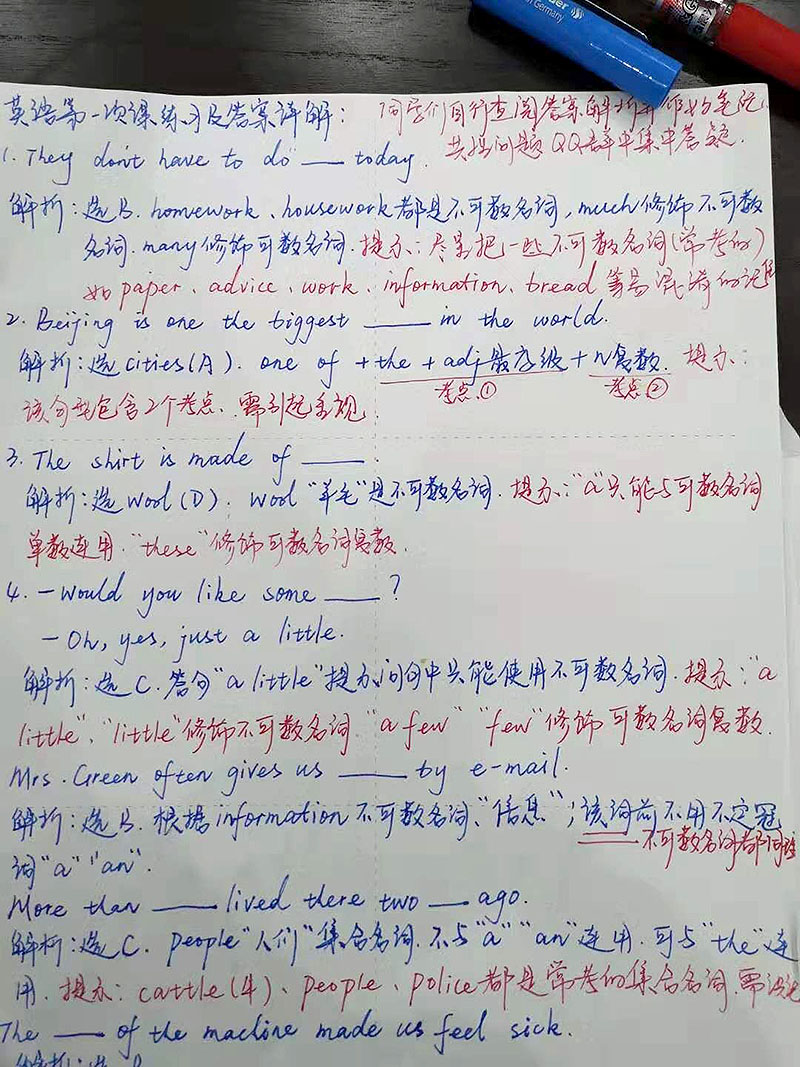 der
Germany
英语第一次课练习及答案详解: 同学们自行查阅答案解析并做好笔记,
共提问题QQ群中集中答疑.
1. They don't have to do ___ today.
解析:选B. homework、housework都是不可数名词,much修饰不可数
名词.many修饰可数名词.提示:尽量把一些不可数名词(常考的)
如paper、advice、work、information、bread等易混淆的记
2. Beijing is one the biggest ___ in the world.
解析:选cities(A). one of +the +adj最高级+n复数. 提示:
考点① 考点②
该句型包含2个考点.需引起重视
3. The shirt is made of ___
解析:选wool(D). wool "羊毛"是不可数名词.提示:"a"只能与可数名词
单数连用."these"修饰可数名词复数.
4. -Would you like some ___?
-Oh, yes, just a little.
解析:选C.答句"a little"提示问句中只能使用不可数名词.提示:"a
little"、"little"修饰不可数名词."a few" "few"修饰可数名词复数.
Mrs. Green often gives us ___ by e-mail.
解析:选B.根据information不可数名词、"信息";该词前不用不定冠
不可数名词都同理
词"a" "an".
More than ___ lived there two ___ ago.
解析:选C. people"人们"集合名词.不与"a" "an"连用.可与"the"连
用.提示:cattle(牛)、people、police都是常考的集合名词.需
The ___ of the machine made us feel sick.
解析:选